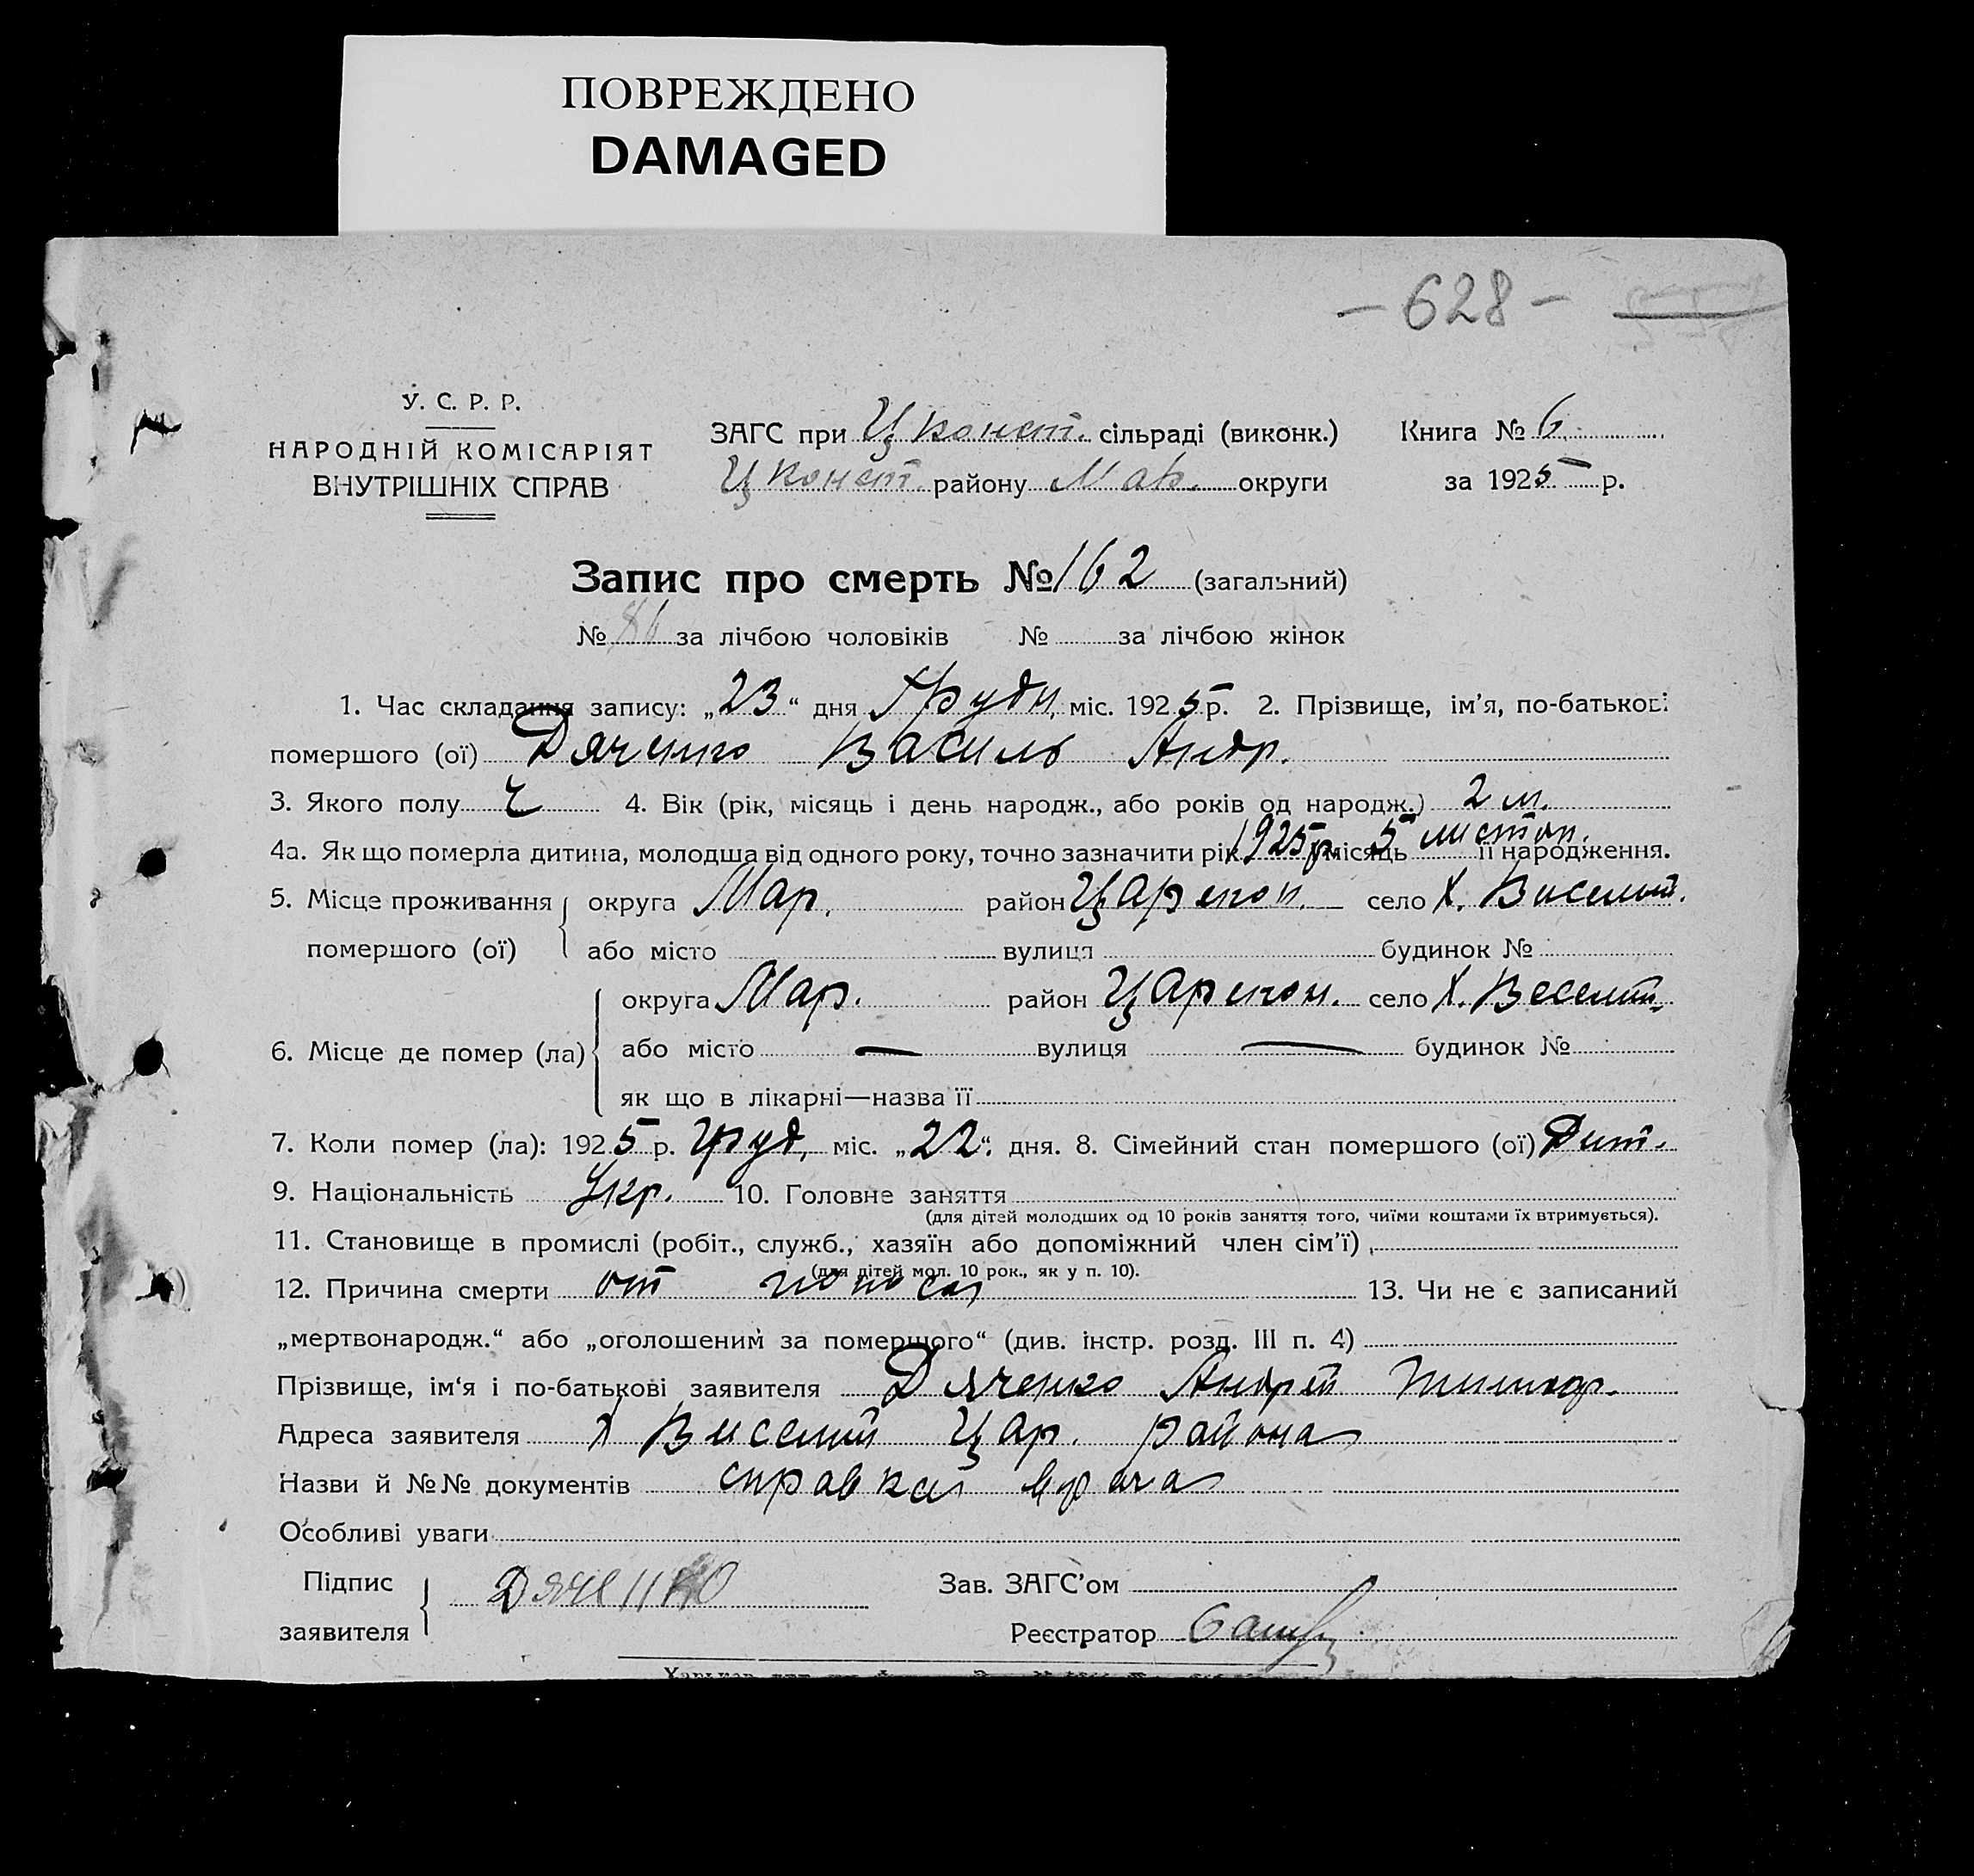 ПОВРЕЖДЕНО
DAMAGED
- 628 -
У. С. Р. Р.
НАРОДНІЙ КОМІСАРІЯТ
ВНУТРІШНІХ СПРАВ
ЗАГС при Ц Конст. сільраді (виконк.) Книга № 6
Ц Конст. району Мар. округи за 1925 р.
Запис про смерть № 162 (загальний)
№ 86 за лічбою чоловіків № за лічбою жінок
1. Час складання запису: „23“ дня Грудн, міс. 1925 р. 2. Прізвище, ім’я, по-батькові
помершого (ої) Дяченко Василь Андр.
3. Якого полу ч 4. Вік (рік, місяць і день народж., або років од народж.) 2 м.
4а. Як що померла дитина, молодша від одного року, точно зазначити рік 1925 р. місяць 5 листоп. її народження.
5. Місце проживання помершого (ої) округа Мар. район Царекон. село Х. Висельй.
або місто вулиця будинок №
6. Місце де помер (ла) округа Мар. район Царекон. село Х. Весельй.
або місто — вулиця — будинок №
як що в лікарні—назва її
7. Коли помер (ла): 1925 р. Груд, міс. „22“ дня. 8. Сімейний стан помершого (ої) Дит.
9. Національність Укр. 10. Головне заняття
(для дітей молодших од 10 років заняття того, чиїми коштами їх втримується).
11. Становище в промислі (робіт., служб., хазяїн або допоміжний член сім’ї)
(для дітей мол. 10 рок., як у п. 10).
12. Причина смерти от поноса 13. Чи не є записаний
„мертвонародж.“ або „оголошеним за помершого“ (див. інстр. розд. III п. 4)
Прізвище, ім‘я і по-батькові заявителя Дяченко Андрей
Адреса заявителя Х Висельй Цар. района
Назви й №№ документів справка врача
Особливі уваги
Підпис заявителя Дяченко Зав. ЗАГС’ом
Реєстратор